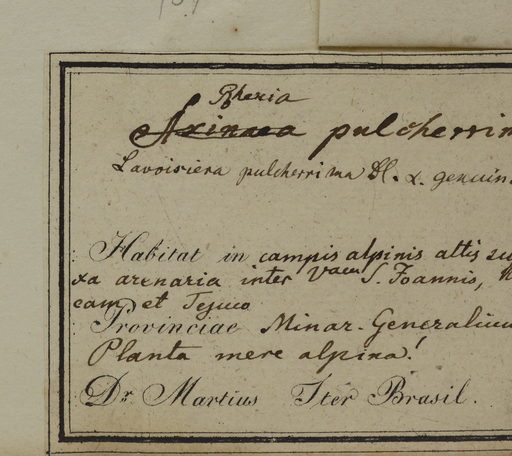 Rhexia
Axinaea pulcherrim
Lavoisiera pulcherrima Dl. α. genuin
Habitat in campis alpinis altis
xa arenaria inter S. Joannis,
cam et Tejuco
Provinciae Minar-Generalium
Planta mere alpina!
Dr. Martius Iter Brasil.